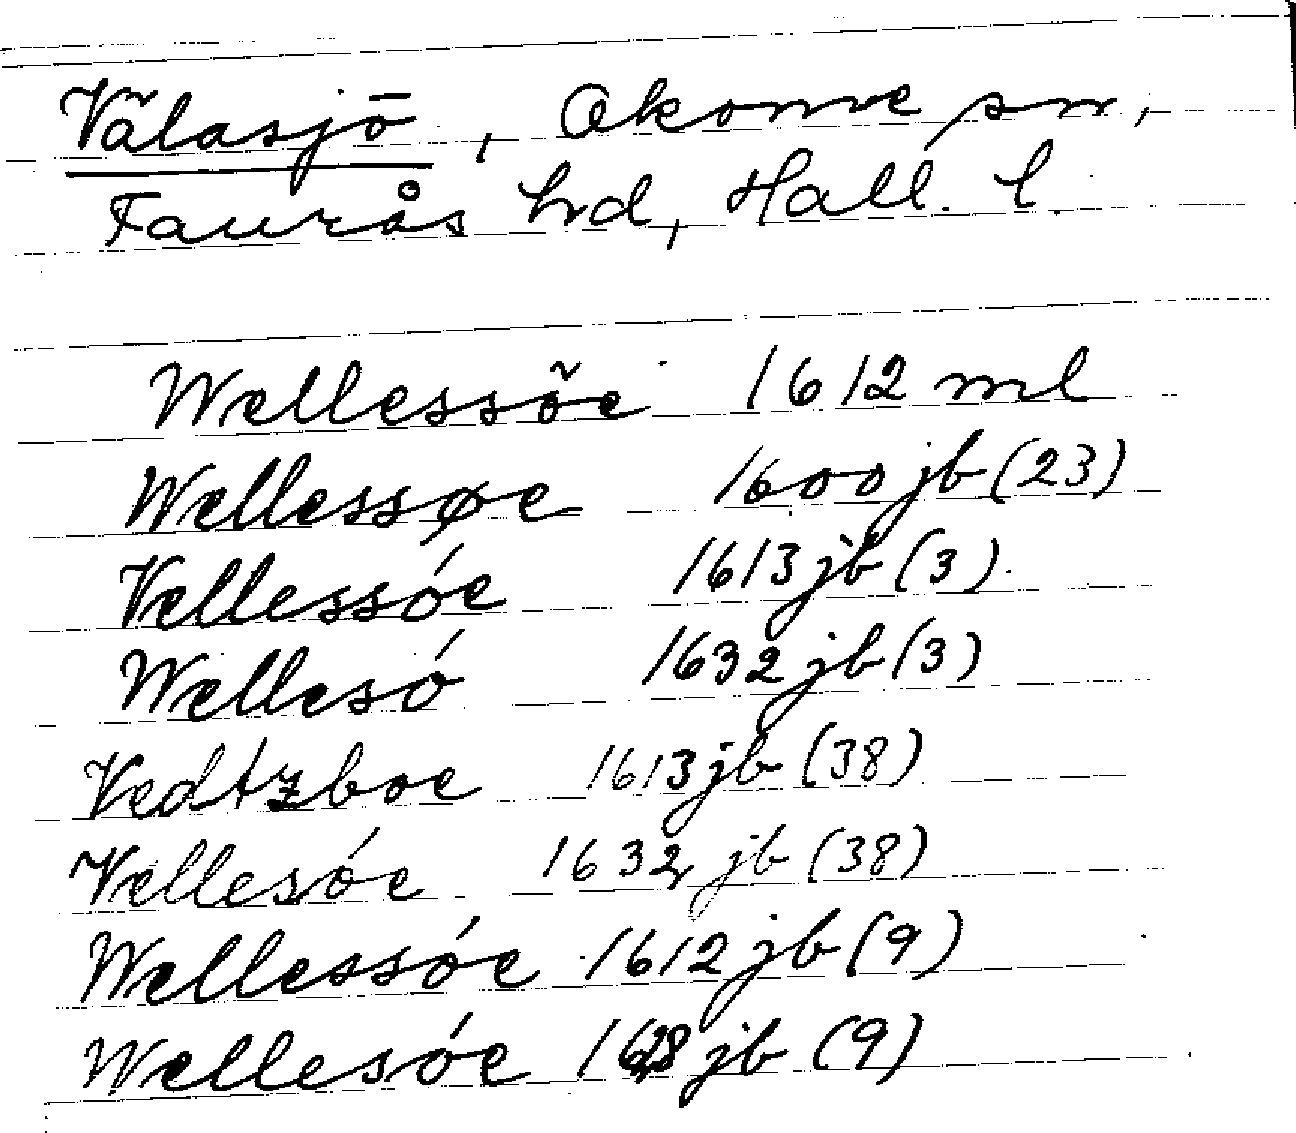 Välasjö, Okome sn,
Faurås hd, Hall. l.
Wellessõe 1612 ml
Wellessøe 1600 jb (23)
Vellessóe 1613 jb (3)
Wellesó 1632 jb (3)
Vedtzboe 1613 jb (38)
Vellesóe 1632 jb (38)
Wellessóe 1612 jb (9)
Wellesóe 1628 jb (9)